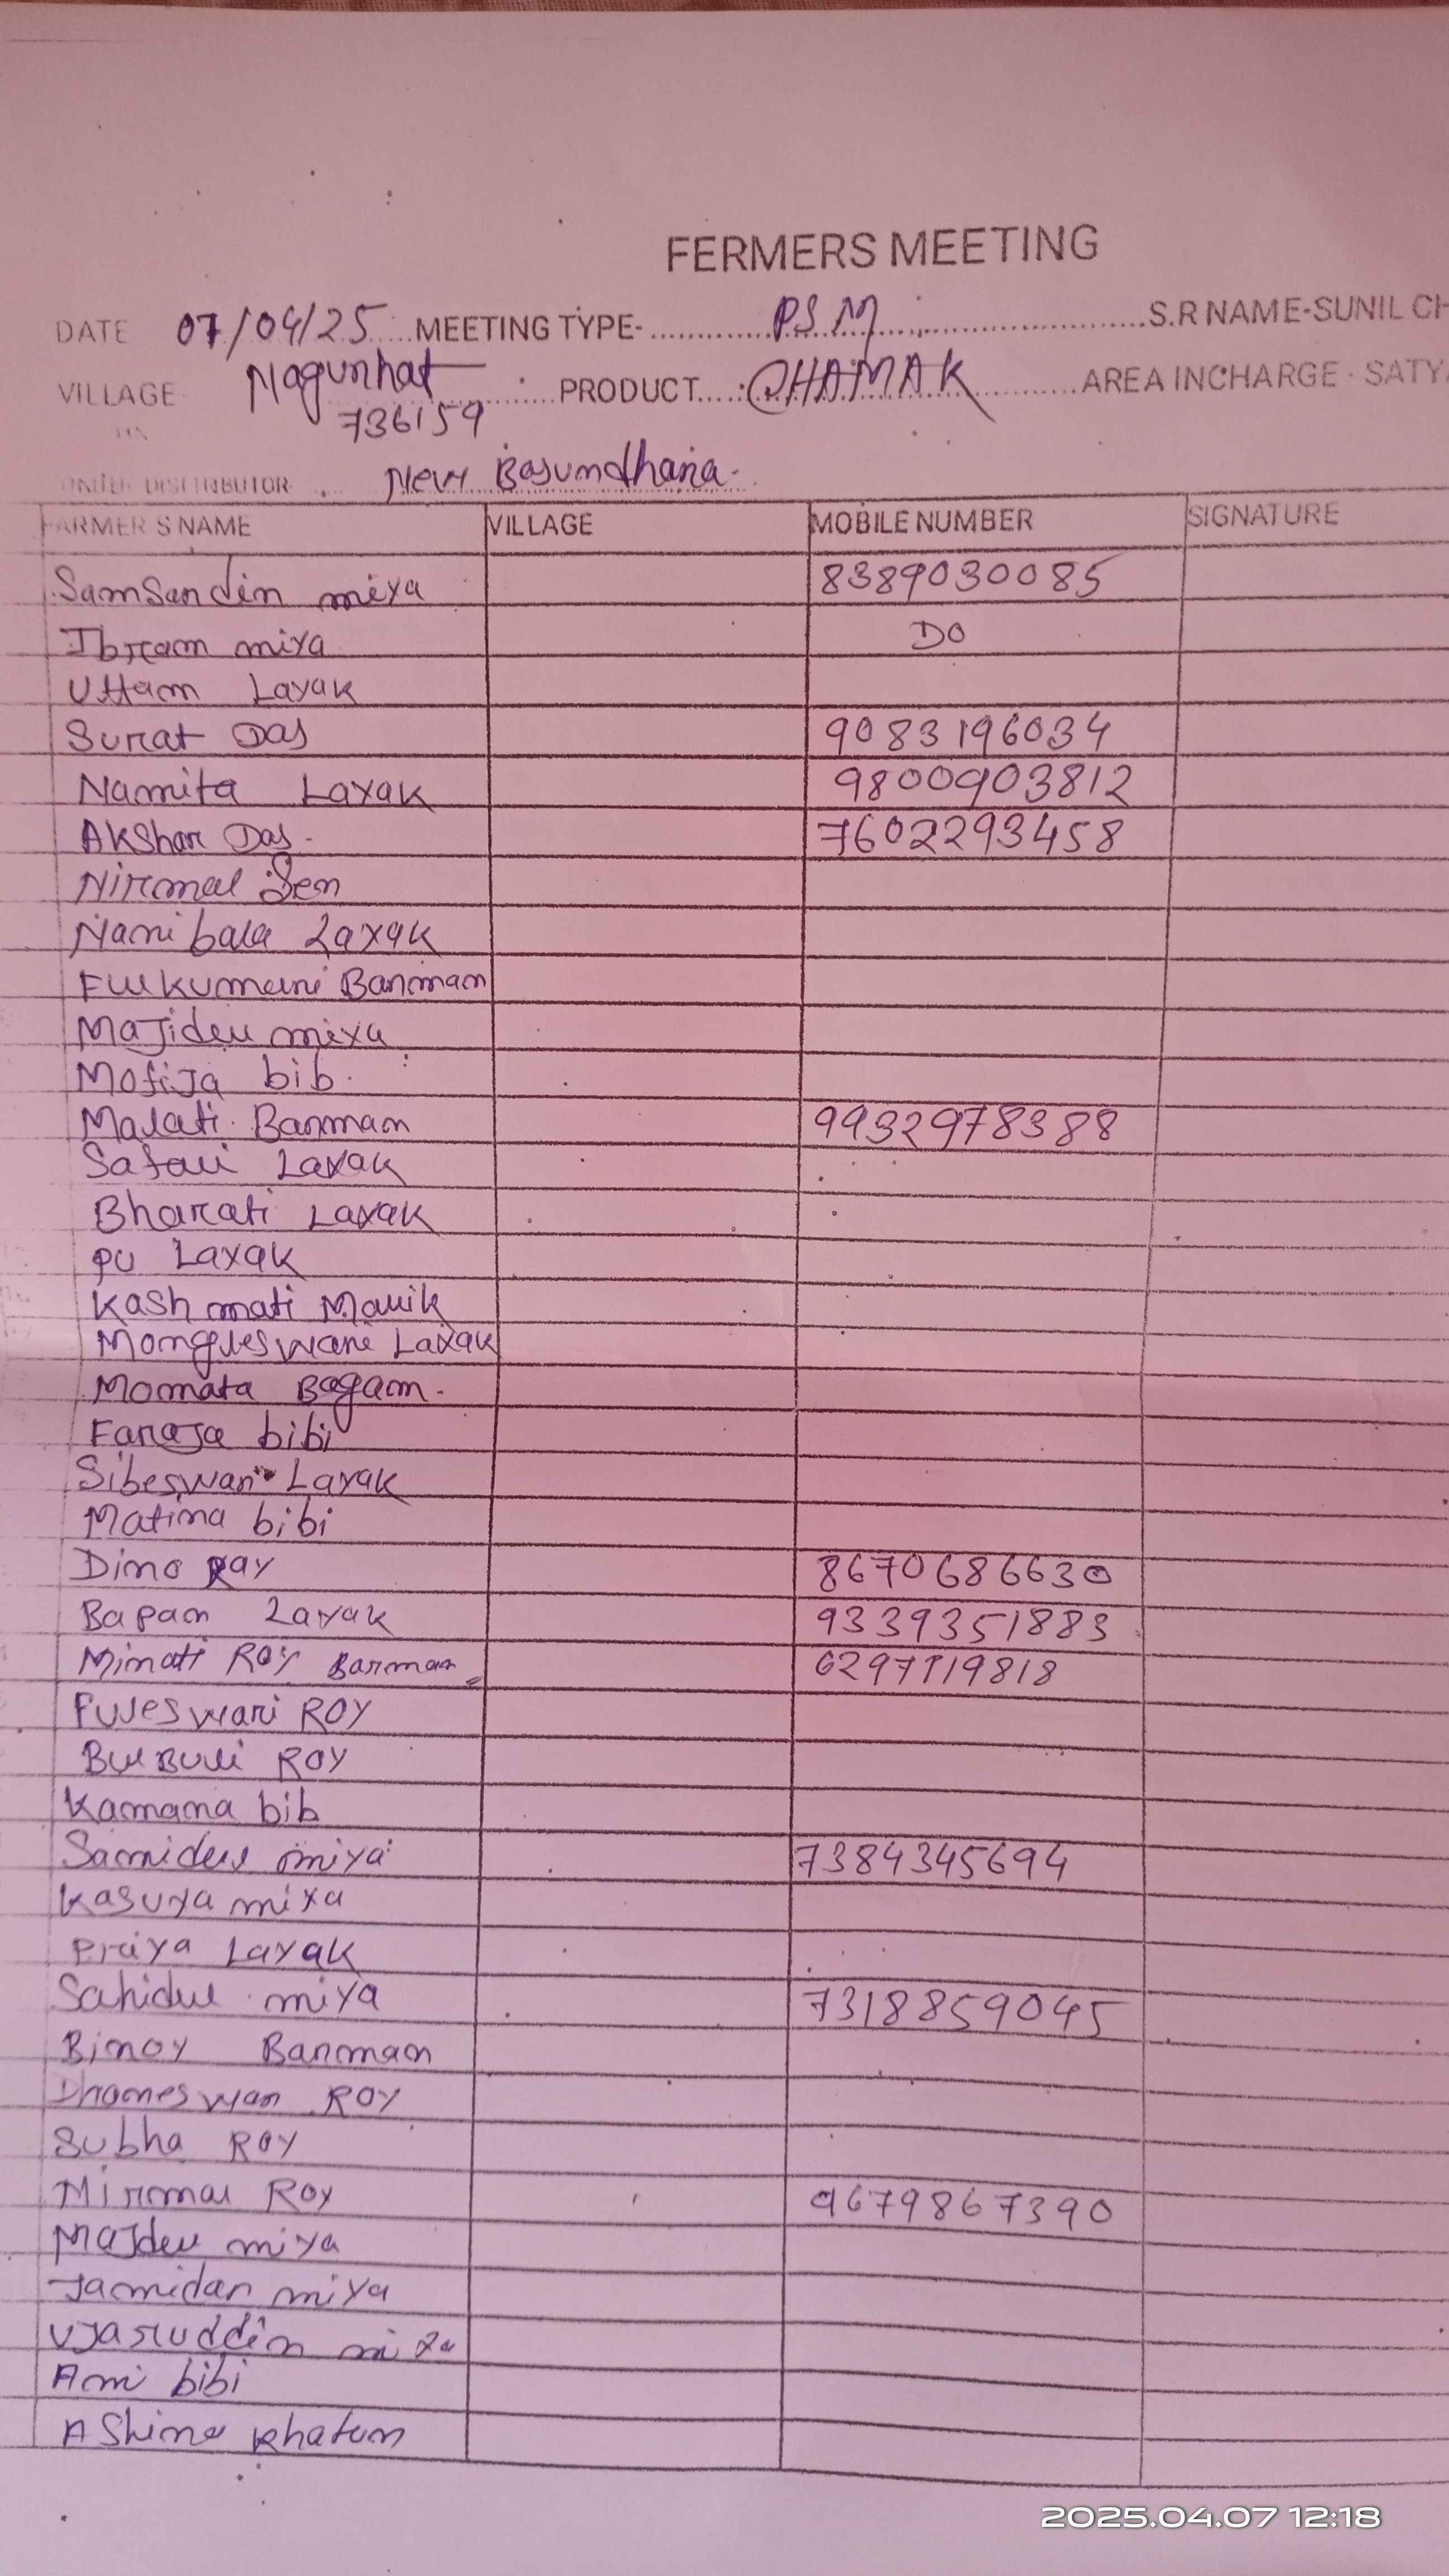 FERMERS MEETING
DATE 07/04/25 MEETING TYPE- PSM S.R NAME-SUNIL CH
VILLAGE Nagurhat PRODUCT CHAMAK AREA INCHARGE - SATYA
736159
UNDER DISTRIBUTOR New Basundhara
FARMER S NAME VILLAGE MOBILE NUMBER SIGNATURE
SamSandin miya 8389030085
Ibram miya DO
Uttam Layak
Surat Das 9083196034
Namita Layak 9800903812
AKShar Das 7602293458
Nirmal Sen
Nani bala Layak
Fulkumari Barman
Majidul miya
Mofija bib
Malati Barman 9932978388
Safali Layak
Bharati Layak
pu Layak
Kashmati Malik
Mongleswari Layak
Momata Bagam
Faraja bibi
Sibeswar Layak
Matina bibi
Dino Ray 8670686630
Bapan Layak 9339351883
Minati ROY Barman 6297119818
Fuleswari ROY
BulBuli ROY
Kamana bib
Samidul miya 7384345694
Kasuya miya
Priya Layak
Sahidul miya 7318859045
Binoy Barman
Dhaneswar ROY
Subha ROY
Nirmal Roy 9679867390
Majdul miya
Jamidar miya
Ujaruddin miya
Ami bibi
AShima Khatun
2025.04.07 12:18